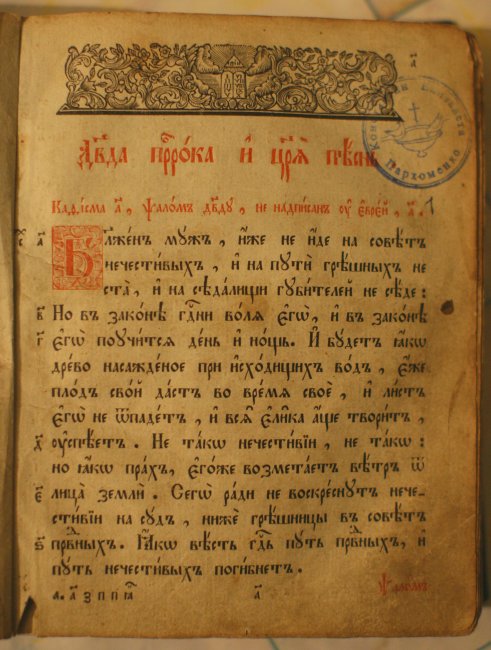 а҃
Дв҃да прⷪ҇рока и҆ цр҃ѧ̀ пѣ́снь
Каѳі́сма а҃, ѱало́мъ дв҃ду, не надпи́санъ оу҆ є҆врє́й, а҃.
Бл҃же́нъ мꙋ́жъ, и҆́же не и҆́де на совѣ́тъ
нечести́выхъ, и҆ на пꙋтѝ грѣ́шныхъ не
ста̀, и҆ на сѣда́лищи гꙋби́телей не сѣ́де:
в҃ Но въ зако́нѣ гдⷭ҇ни во́лѧ є҆гѡ̀, и҆ въ зако́нѣ
г҃ є҆гѡ̀ поꙋчи́тсѧ де́нь и҆ но́щь. И҆ бꙋ́детъ ꙗ҆́кѡ
дре́во насажде́ное при и҆схо́дищихъ во́дъ, є҆́же
пло́дъ сво́й да́стъ во вре́мѧ своѐ, и҆ ли́стъ
є҆гѡ̀ не ѿпаде́тъ, и҆ всѧ̑ є҆ли̑ка а҆́ще твори́тъ,
д҃ оу҆спѣ́етъ. Не та́кѡ нечести́вїи, не та́кѡ:
но ꙗ҆́кѡ пра́хъ, є҆го́же возмета́етъ вѣ́тръ ѿ
є҃ лица̀ землѝ. Сегѡ̀ ра́ди не воскре́снꙋтъ нече-
сти́вїи на сꙋ́дъ, нижѐ грѣ́шницы въ совѣ́тъ
ѕ҃ првⷣныхъ. Ꙗ҆́кѡ вѣ́сть гдⷭ҇ь пꙋ́ть првⷣныхъ, и҆
пꙋ́ть нечести́выхъ поги́бнетъ.
а҃
ѱало́мъ
Пархоменко